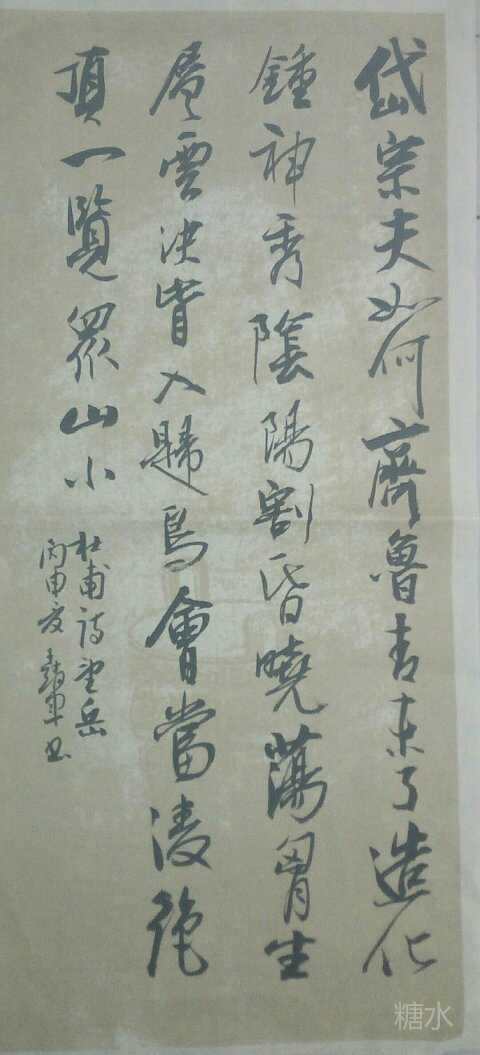 岱宗夫如何齊魯青未了造化
鍾神秀陰陽割昏曉蕩胷生
層雲決眥入歸鳥會當凌絶
頂一覽眾山小
杜甫诗望岳
丙申夏书
糖水